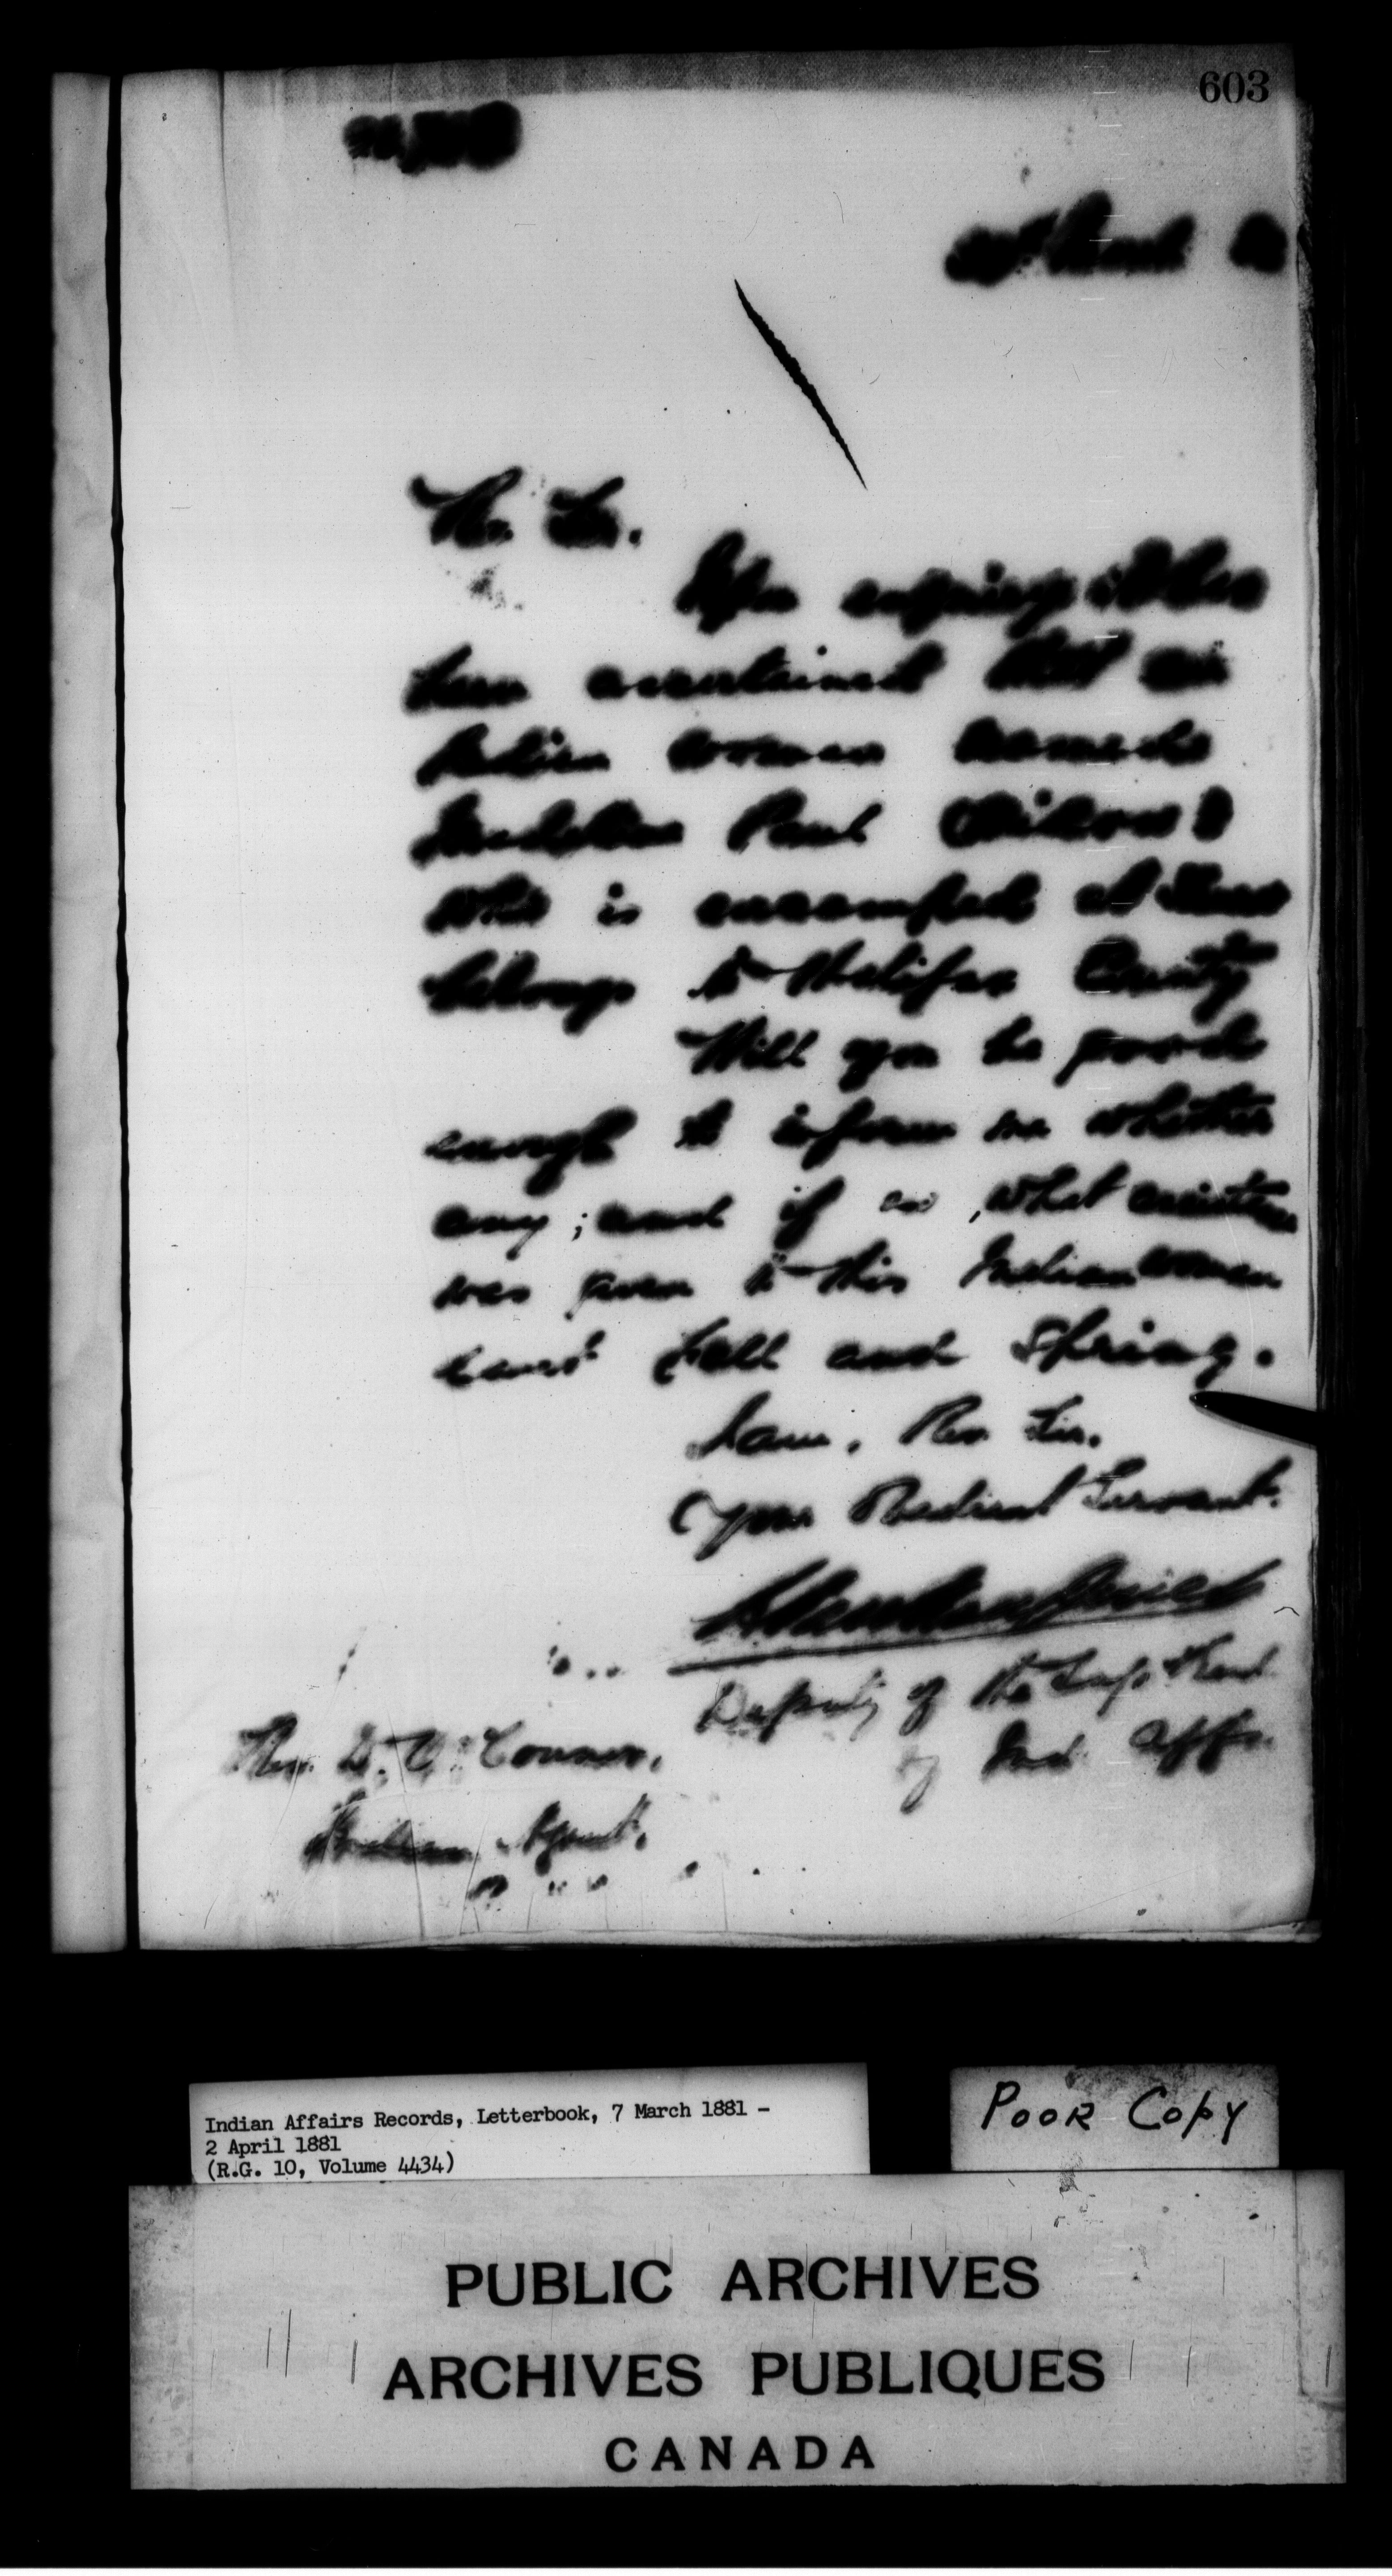 603
March
Sir,
Upon enquiry it has
been ascertained that an
Indian woman named
Paul
who is encamped at
belongs to Halifax County
Will you be good
enough to inform me whether
any; and if so, what assistance
was given to this Indian woman
last Fall and Spring.
I am, Rev. Sir,
Your Obedient Servant.
Deputy of the Supt Genl
of Ind. Affs.
Rev. D. O'Connor,
Indian Agent,
Indian Affairs Records, Letterbook, 7 March 1881 -
2 April 1881
(R.G. 10, Volume 4434)
POOR COPY
PUBLIC ARCHIVES
ARCHIVES PUBLIQUES
CANADA